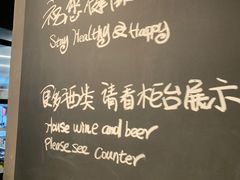 祝您健康
Stay Healthy & Happy
更多酒类 请看柜台展示
House wine and beer
Please see counter